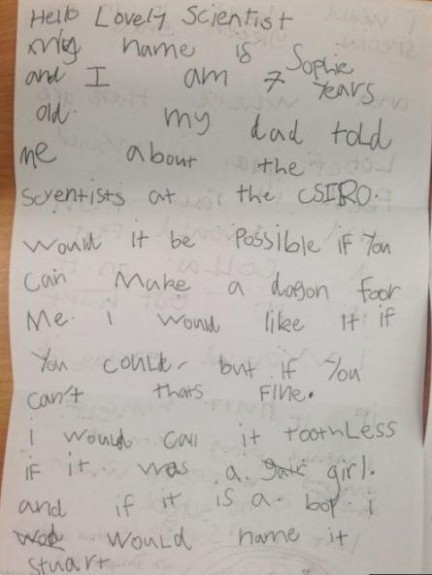 Hello Lovely Scientist
my name is Sophie
and I am 7 Years
old. my dad told
me about the
Screntists at the CSIRO.
Would it be Possible if You
Can Make a dagon foor
Me. I would like it if
You could, but if You
can't thats Fine.
i would call it toothless
if it was a girl.
and if it is a boy i
would name it
Stuart